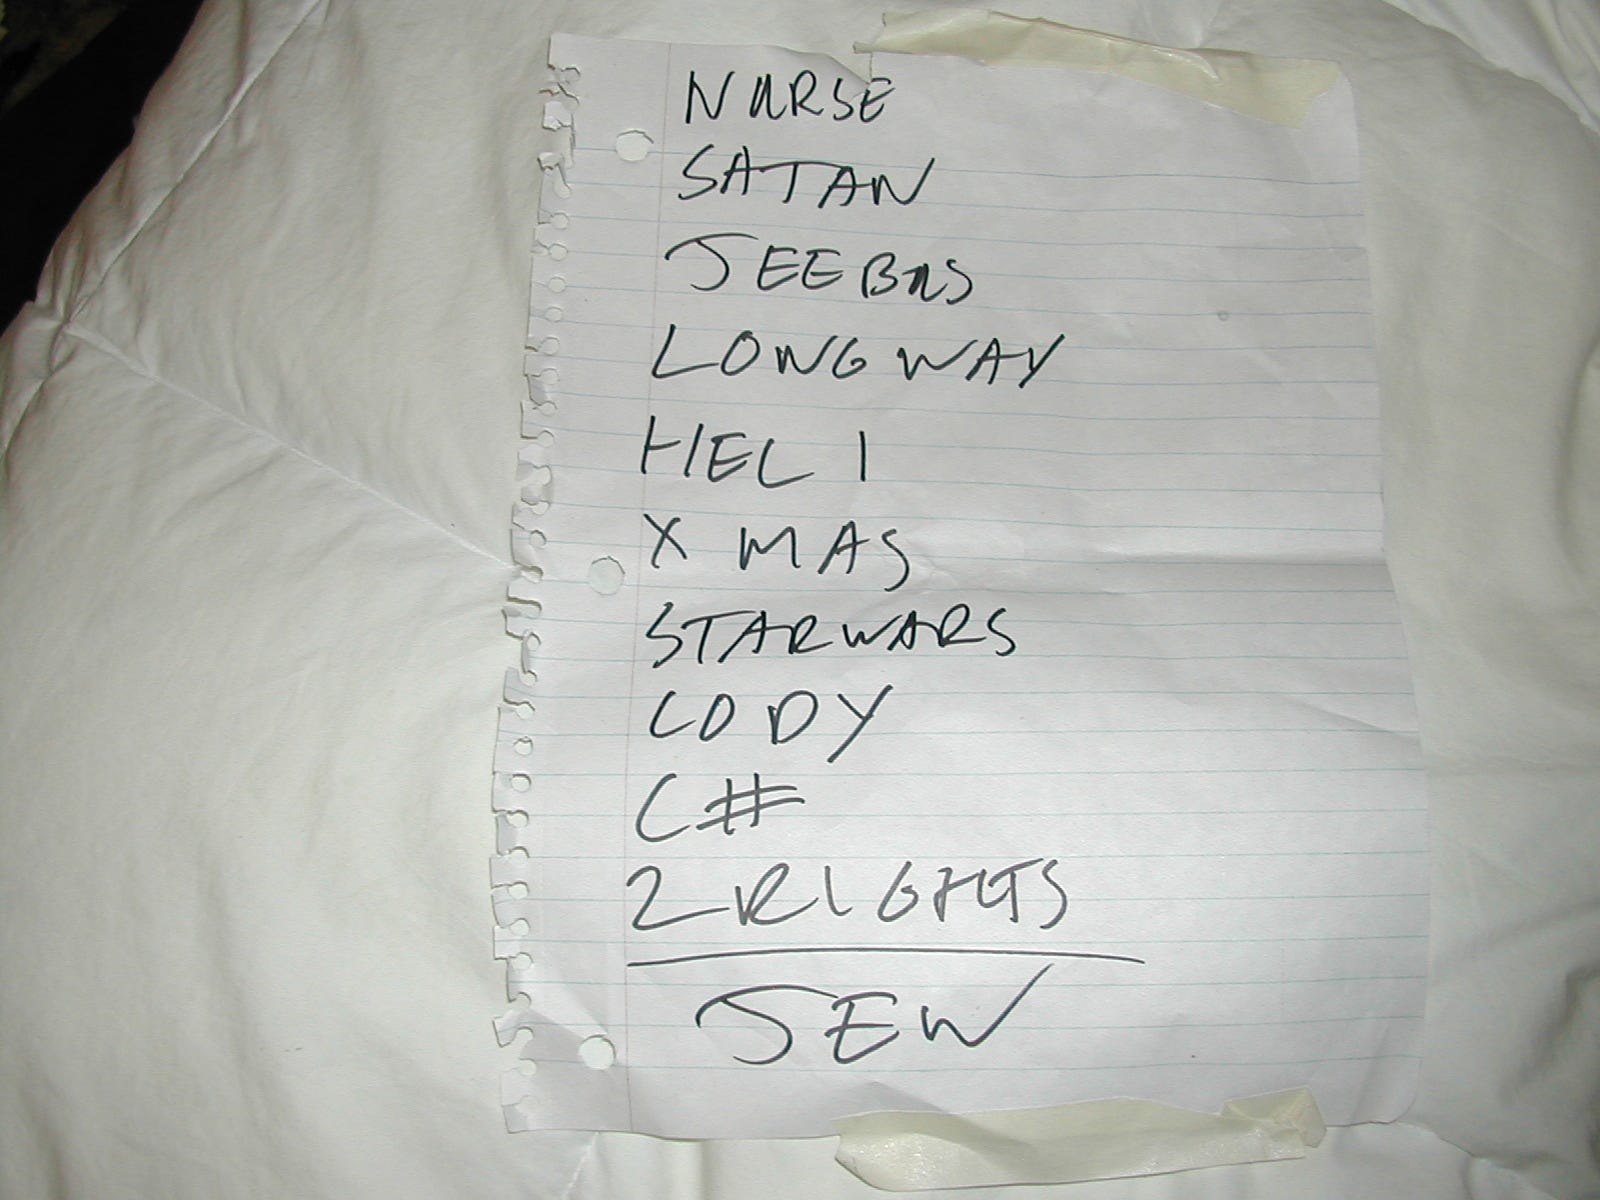 NURSE
SATAN
JEEBUS
LONGWAY
HELI
XMAS
STARWARS
CODY
C#
2RIGHTS
JEW